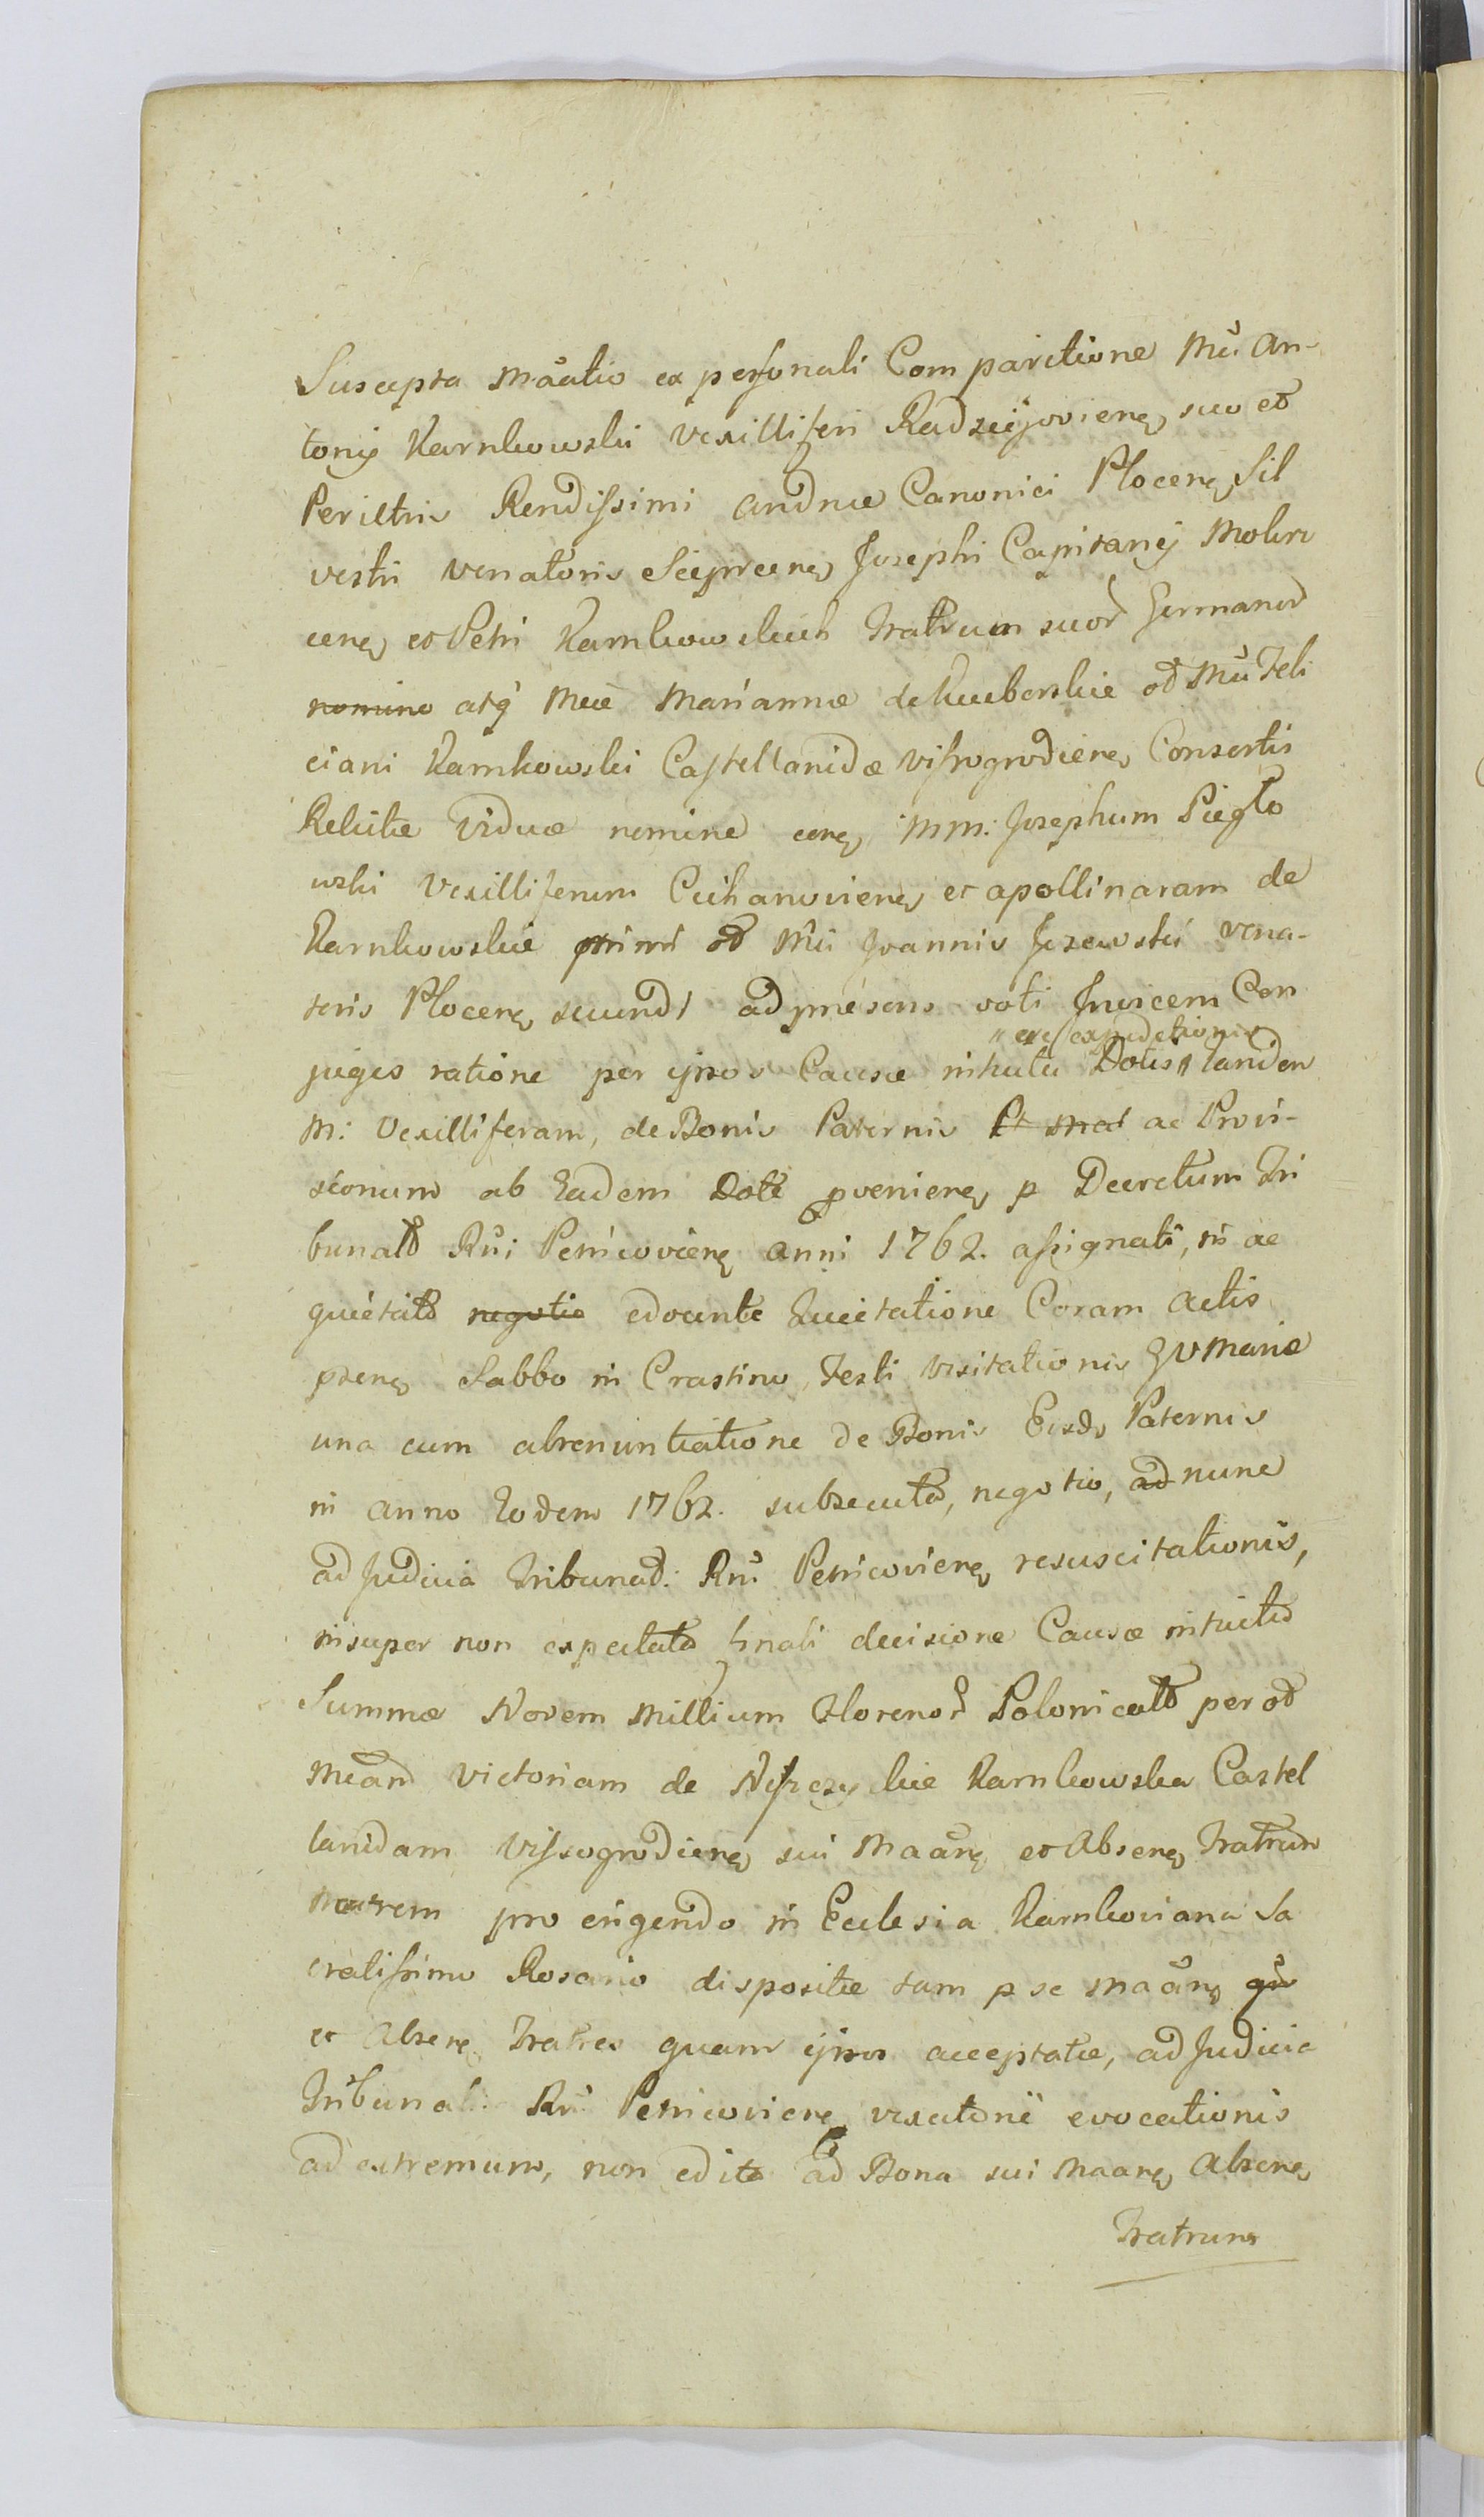 Suscepta Mãntio ex personali Comparitione Mci An-
tonij Karnkowski Vexilliferi Radziejoviens suo et
Perilltris Rendissimi Andreæ Canonici Plocens Sil
vestri Venatoris Sieprcens Josephi Capitanej Mokrz
cens et Petri Karnkowskich Fratrum suor Germanor
nomine atq Mcæ Mariannæ de Kuiborskie od Mci Feli
ciani Karnkowski Castellanidæ Vissogrodiens Consortis
Relictæ Viduæ nomine cons MM: Josephum Pieglo
wski Vexilliferum Ciechanoviens et Apollinaram de
Karnkowskie primi od Mci Joannis Jezewski Vena-
toris Plocens secundi ad præsens voti Invicem Con
juges ratione per ipsos Causæ intuitu Dotis // eandem
// ex expeditionis
M: Vexilliferam, de Bonis Paternis et mat ac Provi-
sionum ab Eadem Dote proveniens p Decretum Tri
bunals Rni Petricoviens Anni 1762. assignati, in ac
quietats negotio edocente Quietatione Coram Actis
præns Sabbo in Crastino Festi Visitationis GVMariæ
una cum abrenuntiatione de Bonis Eisds Paternis
in Anno Eodem 1762. subsecuta, negotio, ad nunc
ad Judicia Tribunal: Rni Petricoviens resuscitationis,
insuper non expectata finali decisione Causæ intuitu
Summæ Novem Millium Florenor Polonicals per od
Mcam Victoriam de Nisczyckie Karnkowska Castel
lanidam Vissogrodiens sui Maãns et Absens Fratrum
Matrem pro erigendo in Ecclesia Karnkoviana Sa
cratissimo Rosario dispositæ tam p se Maãns qu
et Absens Fratres quam ipsos acceptatæ, ad Judicia
Tribunal: Rni Petricoviens vexatonæ evocationis
ad extremum, non edita ad Bona sui Maans Absens
Fratrum